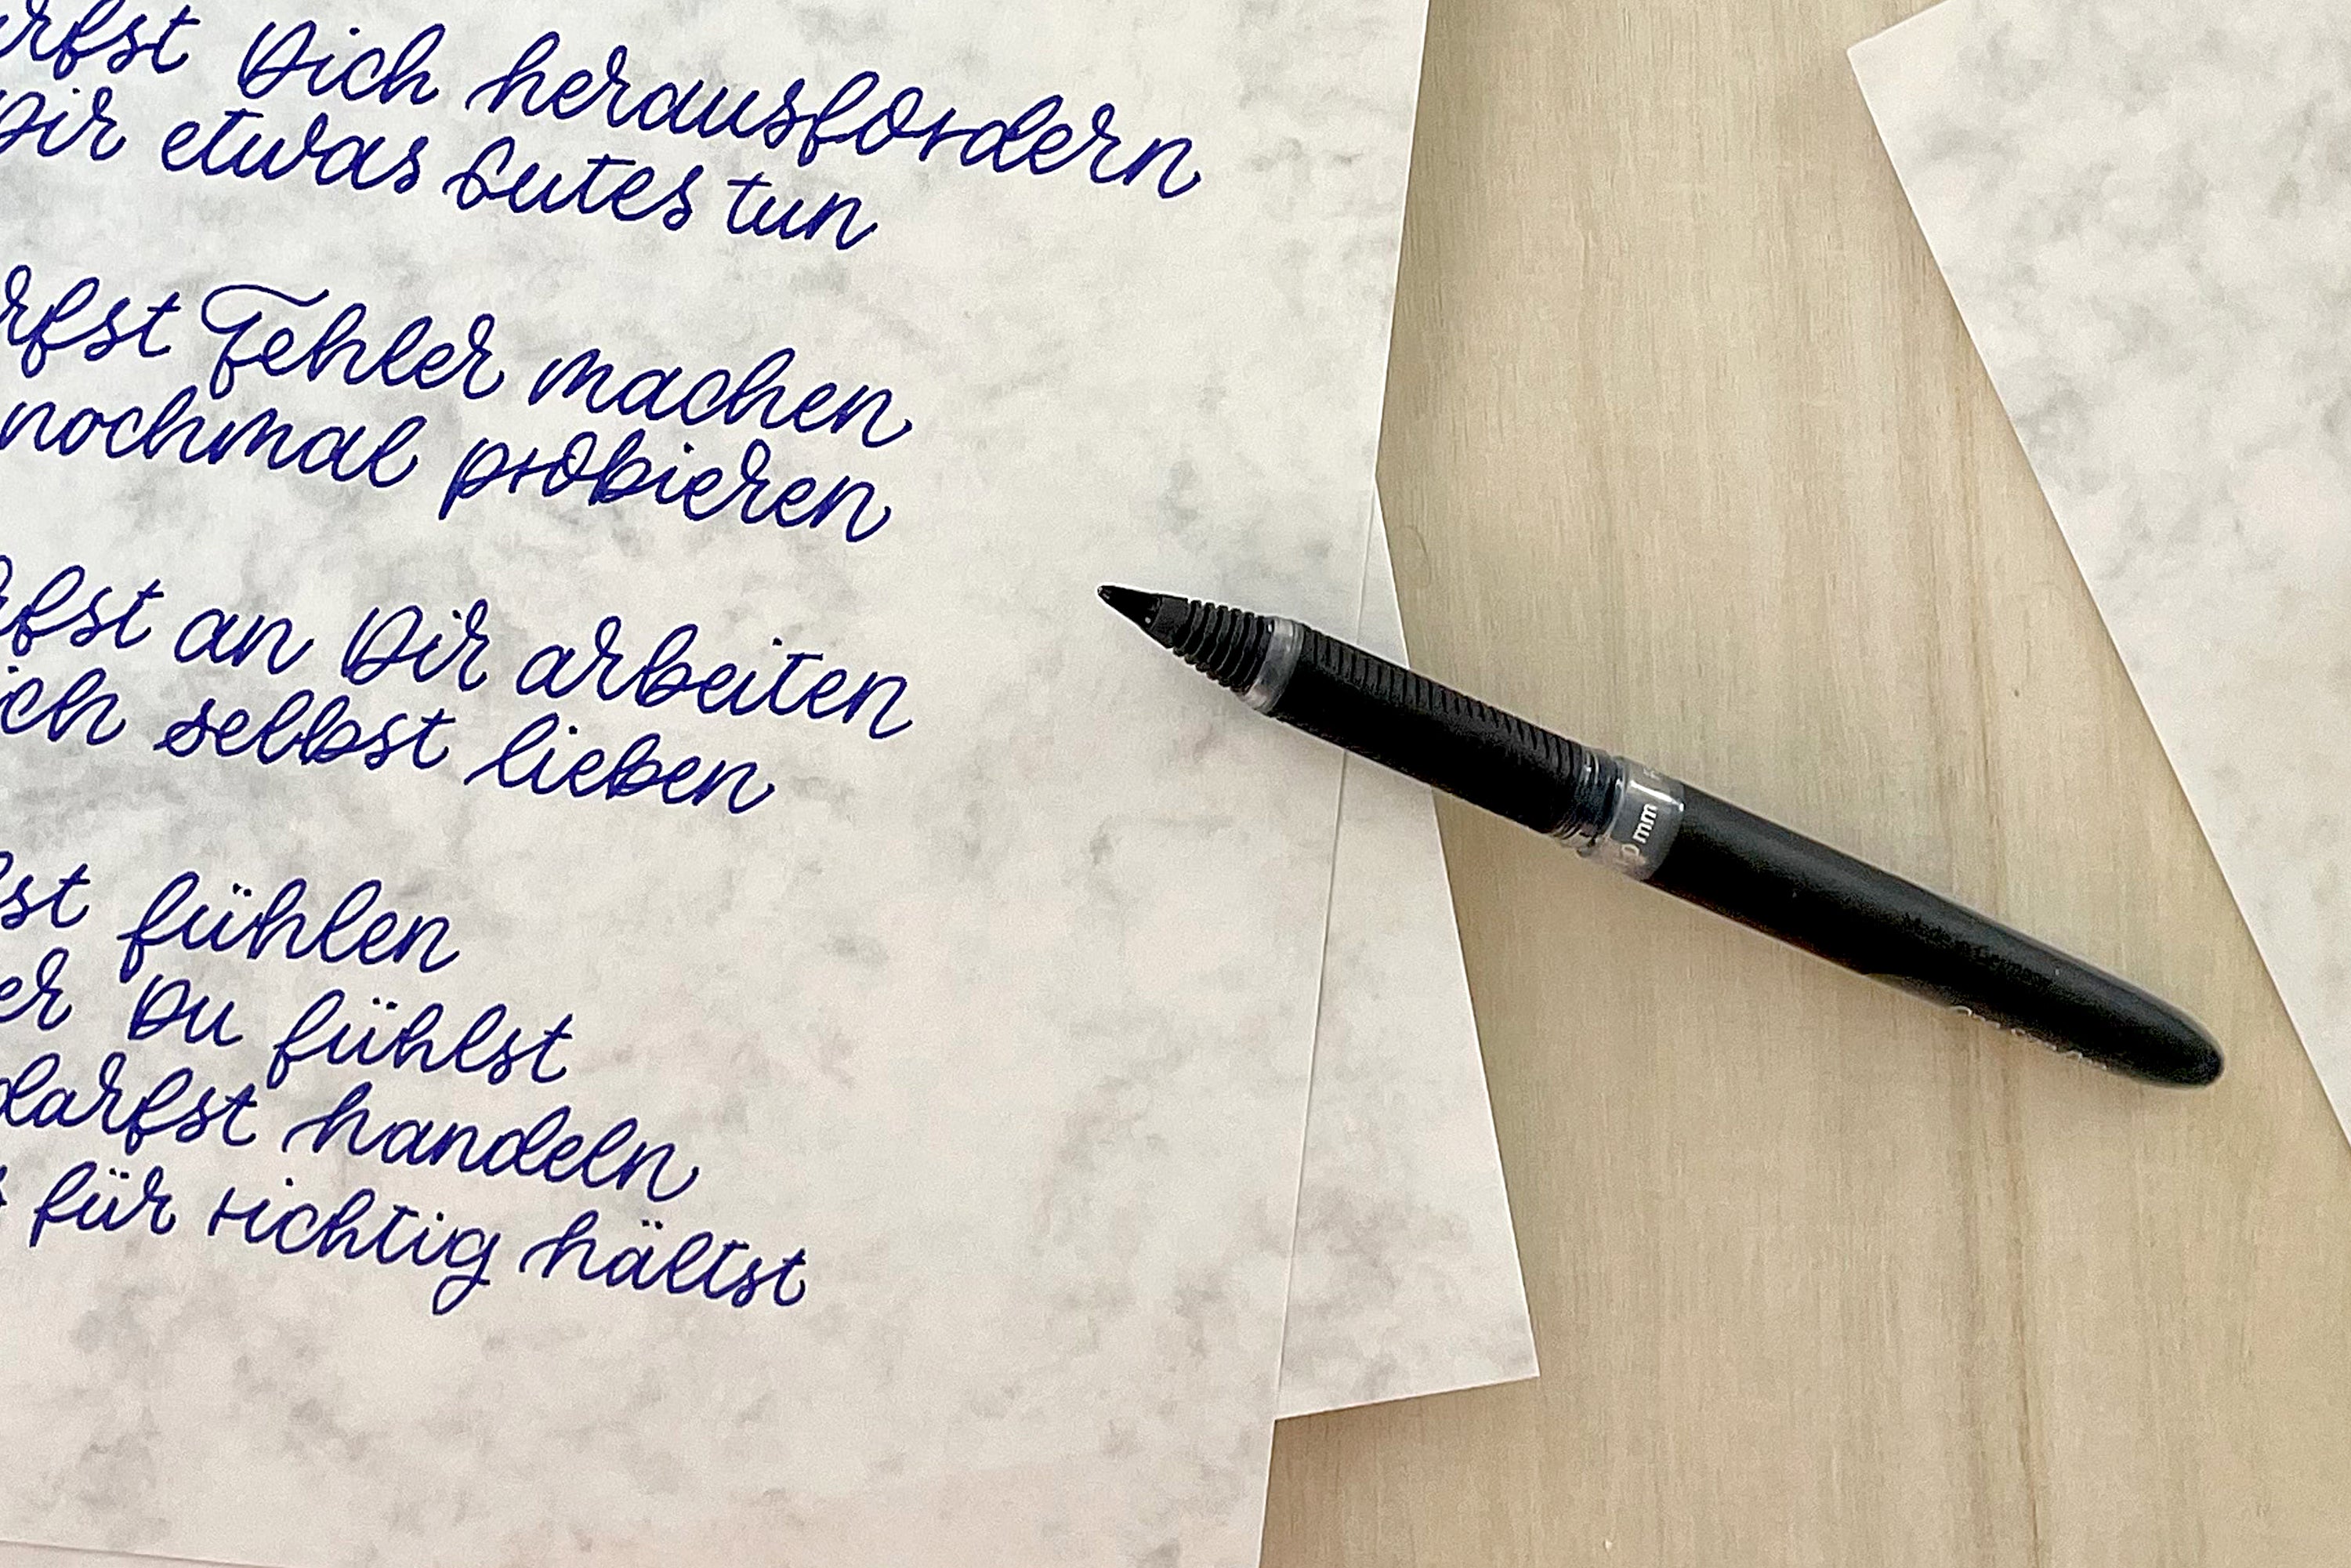 rfst Dich herausfordern
Dir etwas Gutes tun
rfst Fehler machen
nochmal probieren
rfst an Dir arbeiten
ich selbst lieben
fst fühlen
er Du fühlst
darfst handeln
für richtig hältst
mm